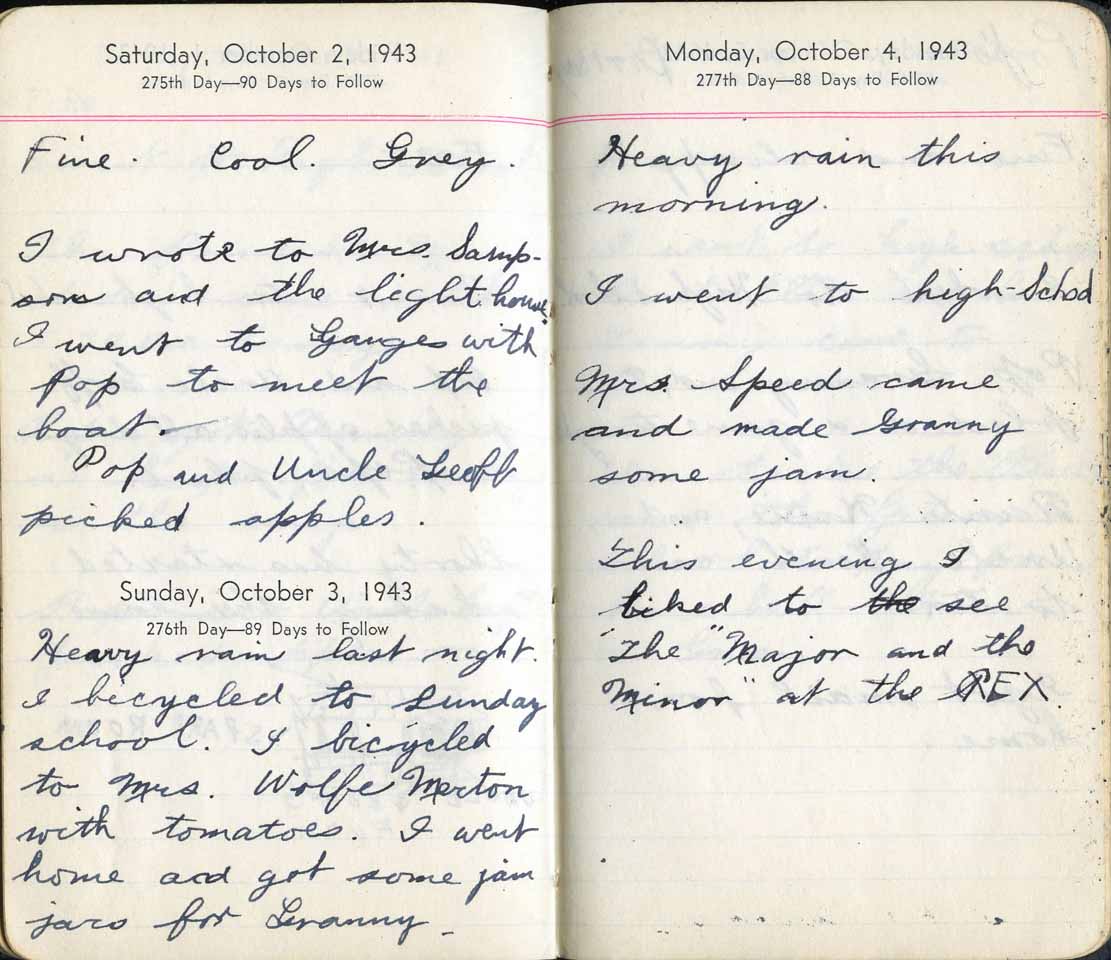 Saturday, October 2, 1943
275th Day—90 Days to Follow
Fine. Cool. Grey.
I wrote to Mrs. Samp-
son and the light house.
I went to Ganges with
Pop to meet the
boat.
Pop and Uncle Geoff
picked apples.
Sunday, October 3, 1943
276th Day—89 Days to Follow
Heavy rain last night.
I bicycled to Sunday
school. I bicycled
to Mrs. Wolfe Merton
with tomatoes. I went
home and got some jam
jars for Granny
Monday, October 4, 1943
277th Day—88 Days to Follow
Heavy rain this
morning.
I went to high-School
Mrs. Speed came
and made Granny
some jam.
This evening I
biked to the see
"The "Major and the
Minor" at the REX.